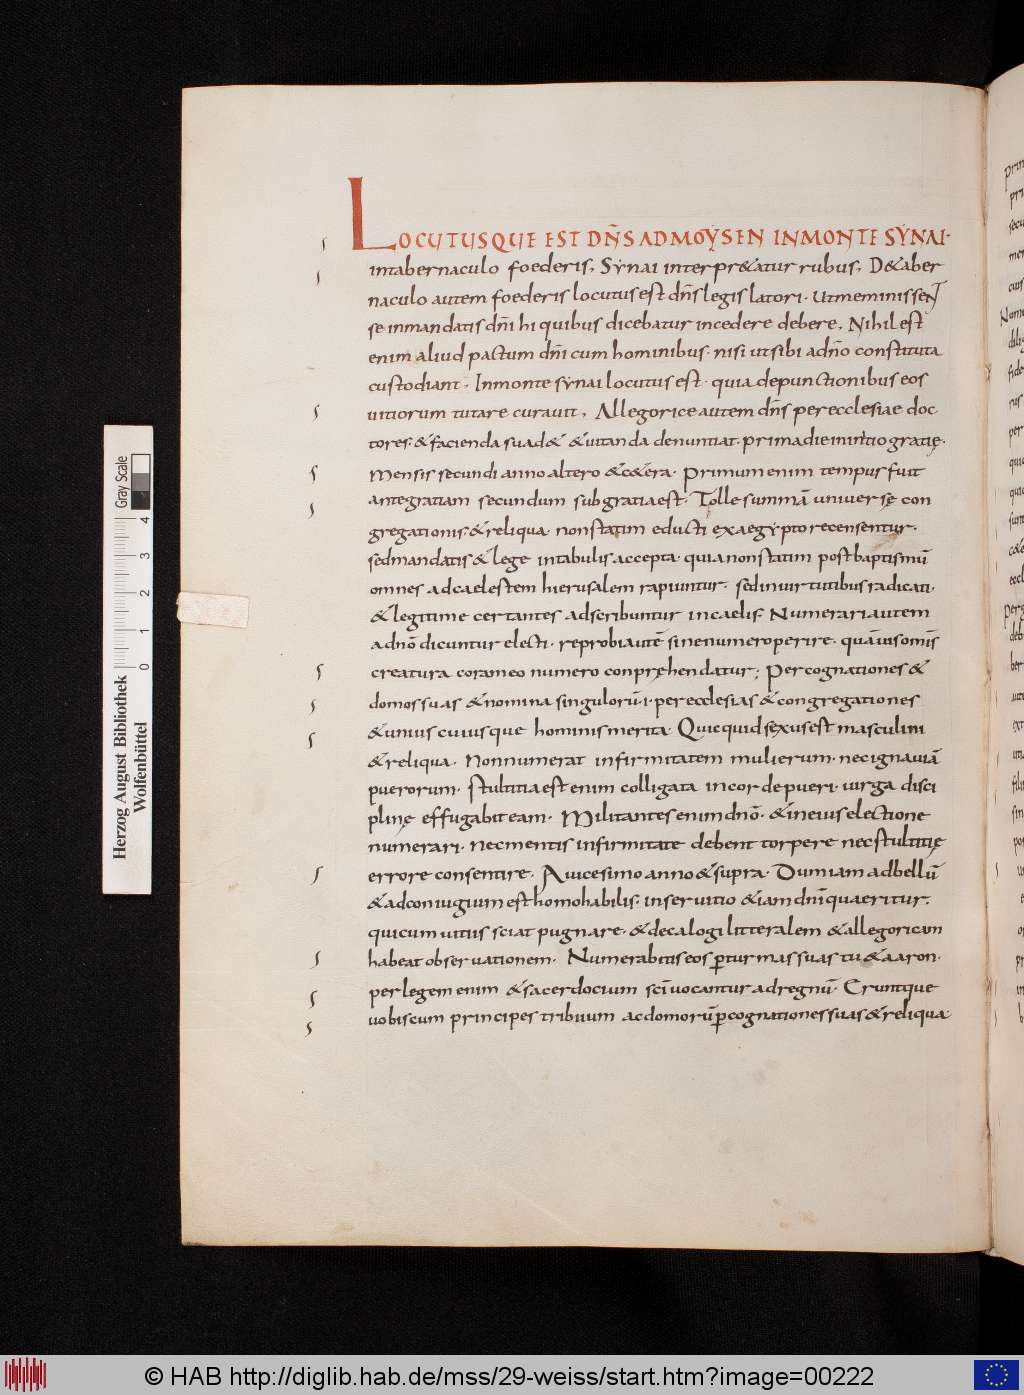 LOCUTUSQUE EST DN̄S ADMOYSEN INMONTE SẎNAI·
intabernaculo foederis, Sẏnai interpr&atur rubus, D&aber
naculo autem foederis locutus est dn̄s legis latori · utmeminissent
se inmandatis dn̄i hi quibus dicebatur incedere debere, Nihil est
enim aliud pactum dn̄i cum hominibus · nisi ut sibi adn̄o constituta
custodiant, Inmonte sẏnai locutus est · quia depunctionibus eos
uitiorum tutare curauit, Allegorice autem dn̄s per ecclesiae doc
tores · & facienda suad& & uitanda denuntiat · prima die initio gratię·
Mensis secundi anno altero & c&era · Primum enim tempus fuit
ante gratiam secundum sub gratia est · Tolle summā uniuerse con
gregationis · & reliqua · non statim educti ex aegypto recensentur ·
sed mandatis & lege intabulis accepta · quia non statim post baptismū
omnes ad caelestem hierusalem rapiuntur · sed in uirtutibus radicati ·
& legitime certantes adscribuntur in caelis · Numerari autem
adnō dicuntur electi · reprobi autē sine numero perire · quāuis omīs
creatura coraneo numero conpręhendatur; Per cognationes &
domos suas & nomina singulorū · i · per ecclesias & congregationes
& unius cuiusque hominis merita · Quicquid sexus est masculini
& reliqua · Non numerat infirmitatem mulierum · nec ignauiā
puerorum · stultitia est enim colligata incorde pueri · uirga disci
plinę effugabit eam · Militantes enim dn̄o · & in eius electione
numerari · nec mentis infirmitate debent torpere nec stultitię
errore consentire · A uicesimo anno & supra · Dum iam adbellū
& adconiugium est homo habilis · inseruitio & iam dn̄i quaeritur ·
qui cum uitiis sciat pugnare · & decalogi litteralem & allegoricam
habeat obseruationem · Numerabitis eos ꝑ turmas suas tu & aaron ·
per legem enim & sacerdocium scī uocantur adregnū · Eruntque
uobiscum principes tribuum ac domorū ꝑ cognationes suas & reliqua
Herzog August Bibliothek
Wolfenbüttel
0 1 2 3 4
Gray Scale
© HAB http://diglib.hab.de/mss/29-weiss/start.htm?image=00222